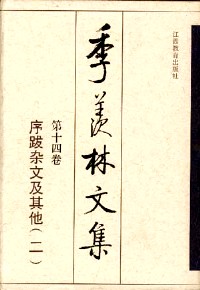 季羡林文集
第十四卷
序跋杂文及其他(二)
江西教育出版社